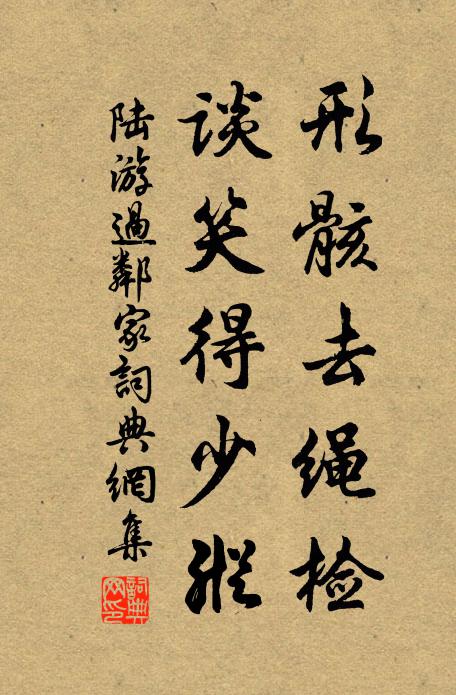 形骸去绳检
谈笑得少纵
陆游過鄰家詞典網集
詞典网印